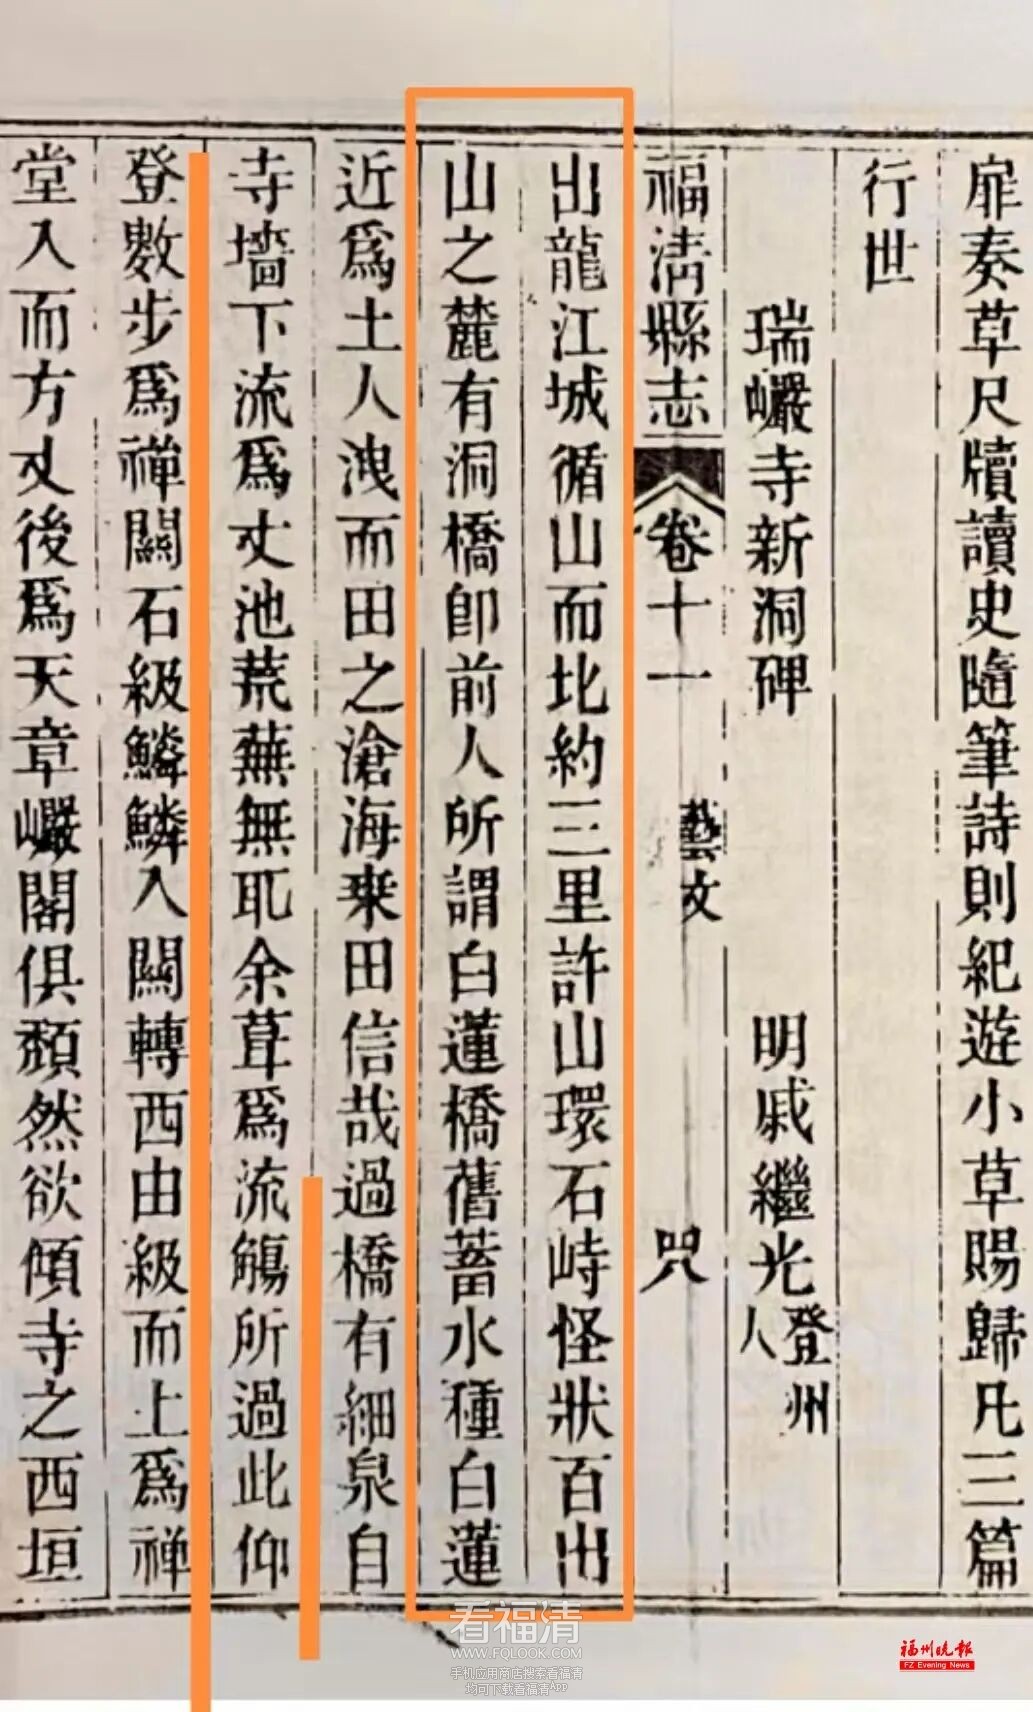 扉奏草尺牘讀史隨筆詩則紀遊小草賜歸凡三篇
行世
瑞巖寺新洞碑 明戚繼光登州人
福淸縣志 卷十一 藝文
出龍江城循山而北約三里許山環石峙怪狀百出
山之麓有洞橋卽前人所謂白蓮橋舊蓄水種白蓮
近爲土人洩而田之滄海桒田信哉過橋有細泉自
寺墻下流爲丈池荒蕪無耴余葺爲流觴所過此仰
登數步爲禪關石級鱗鱗入關轉西由級而上爲禅
堂入而方丈後爲天章巖閣俱頹然欲傾寺之西垣
看福清
WWW.FQLOOK.COM
手机应用商店搜索看福清
均可下载看福清App
福州晚报
FZ Evening News